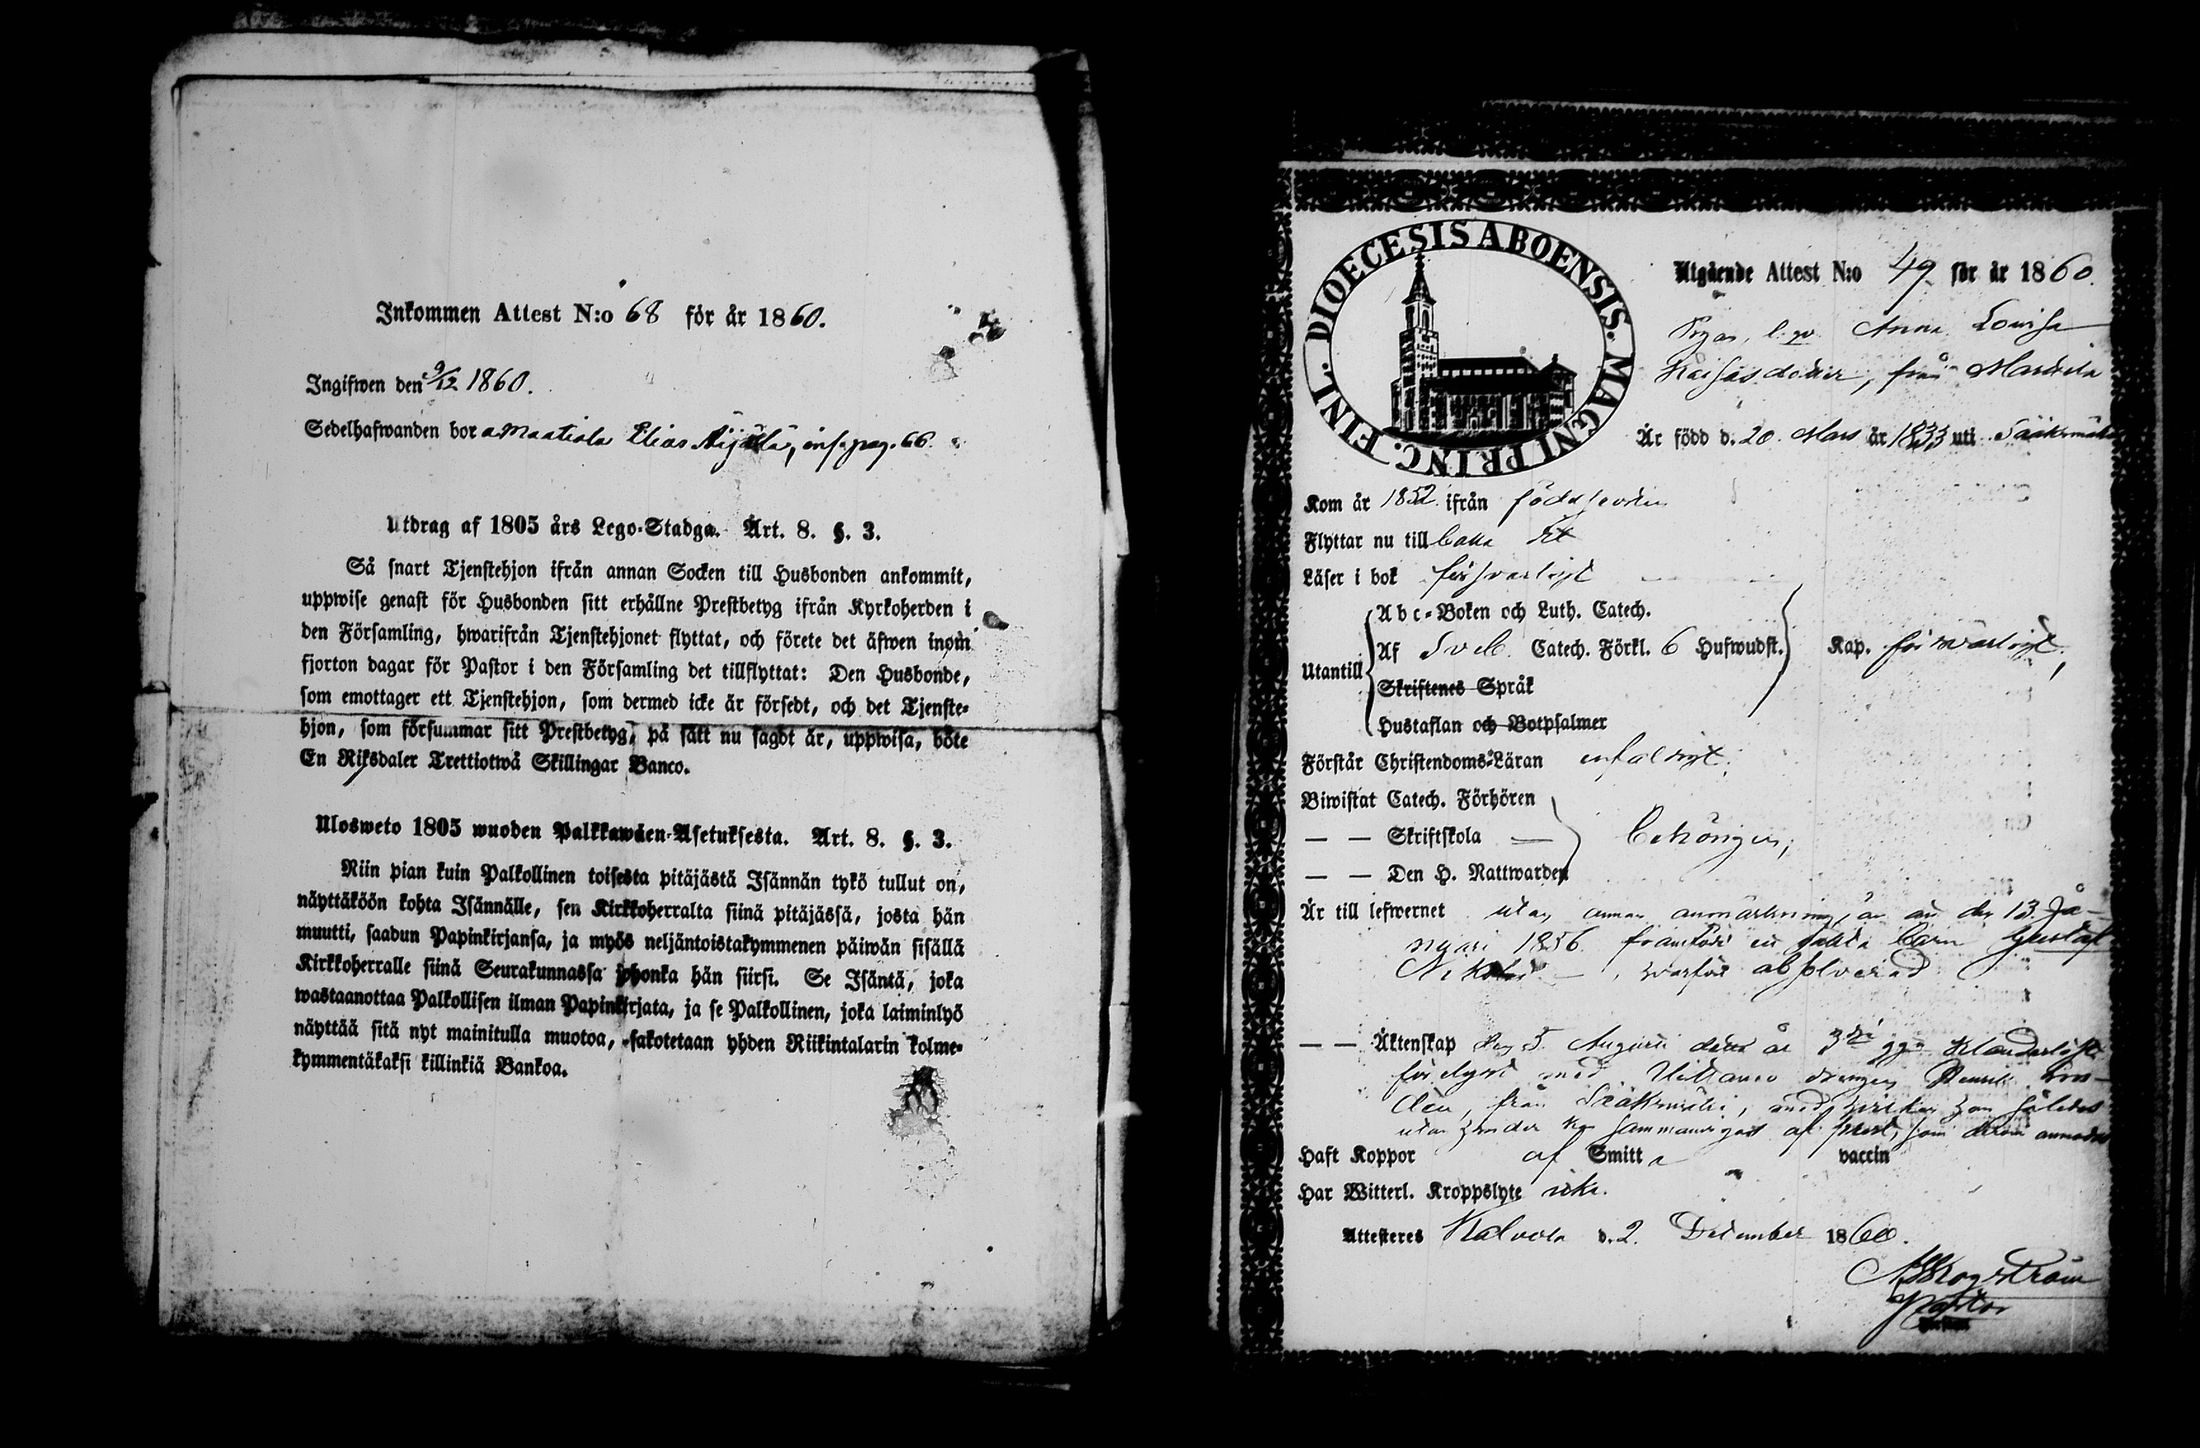 Inkommen Attest N:o 68 för år 1860.
Ingifwen den 9/12 1860.
Sedelhafwanden bor å Maatiala Elias Äijälä, inf. pag. 66.
Utdrag af 1805 års Lego-Stadga. Art. 8. §. 3.
Så snart Tjenstehjon ifrån annan Socken till Husbonden ankommit,
uppwise genast för Husbonden sitt erhållne Prestbetyg ifrån Kyrkoherden i
den Församling, hwarifrån Tjenstehjonet flyttat, och förete det äfwen inom
fjorton dagar för Pastor i den Församling det tillflyttat: Den Husbonde,
som emottager ett Tjenstehjon, som dermed icke är försedt, och det Tjenste-
hjon, som försummar sitt Prestbetyg, på sätt nu sagdt är, uppwisa, böte
En Riksdaler Trettiotwå Skillingar Banco.
Ulosweto 1805 wuoden Palkkawäen-Asetuksesta. Art. 8. §. 3.
Niin pian kuin Palkollinen toisesta pitäjästä Isännän tykö tullut on,
näyttäköön kohta Isännälle, sen Kirkkoherralta siinä pitäjässä, josta hän
muutti, saadun Papinkirjansa, ja myös neljäntoistakymmenen päiwän sisällä
Kirkkoherralle siinä Seurakunnassa johonka hän siirsi. Se Isäntä, joka
wastaanottaa Palkollisen ilman Papinkirjata, ja se Palkollinen, joka laiminlyö
näyttää sitä nyt mainitulla muotoa, sakotetaan yhden Riikintalarin kolme-
kymmentäkaksi killinkiä Bankoa.
DIOECESIS ABOENSIS. MAGNI PRINC. FINL.
Utgående Attest N:o 49 för år 1860.
Pigan, Anna Lovisa
Kaisasdotter, från
Är född d. 20 Mars år 1833 uti Sääksmäki
Kom år 1852 ifrån födelseorten
Flyttar nu till baka dit
Läser i bok försvarligt
Abc-Boken och Luth. Catech.
Utantill Af Sveb. Catech. Förkl. 6 Hufwudst. Kap. försvarligt,
Skriftenes Språk
Hustaflan och Botpsalmer
Förstår Christendoms-Läran enfaldigt.
Biwistat Catech. Förhören
— — Skriftskola — behörigen,
— — Den H. Nattwarden
Är till lefwernet utan annan anmärkning, än att den 13 Ja-
nuari 1856 framfödt ett oäkta barn Gustaf
absolverad
— — Äktenskap den 5 Augusti detta år 3die ggn
med drengen Henrik
från Sääksmäki, med hvilken hon således
utan hinder kan sammanvigas af prest, som derom anmodas
Haft Koppor af Smitta vaccin
Har Witterl. Kroppslyte icke.
Attesteres Kalvola d. 2 December 1860.
Pastor